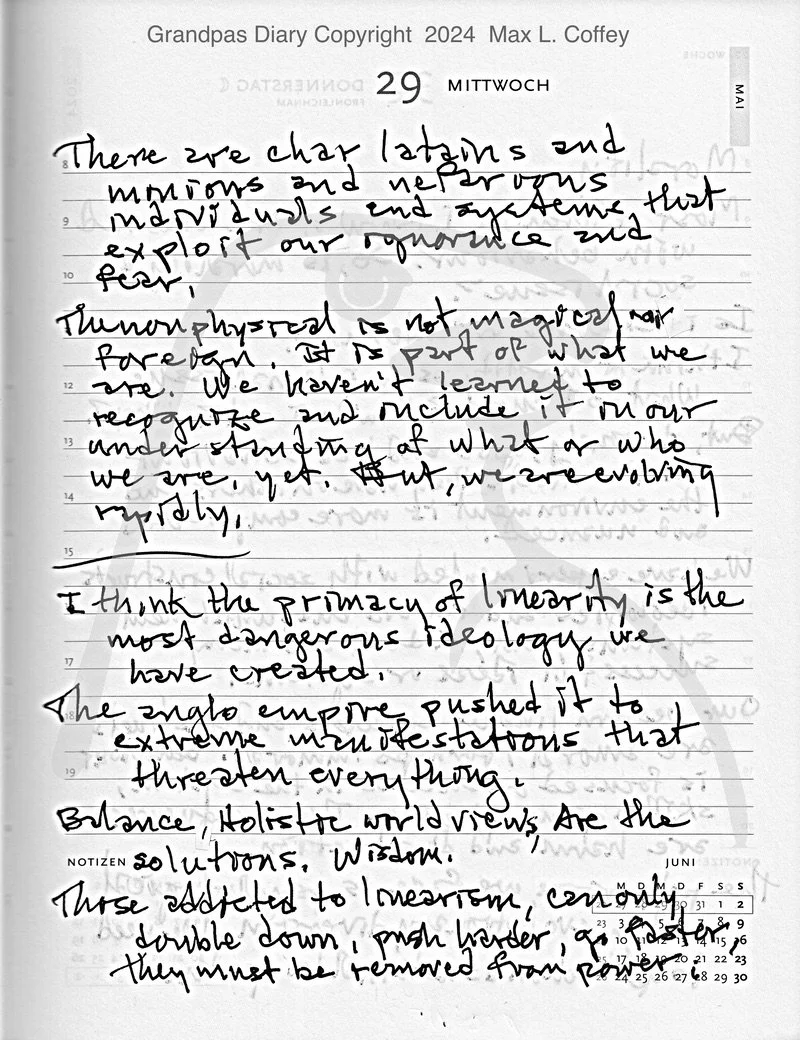 Grandpas Diary Copyright 2024 Max L. Coffey
29 MITTWOCH
MAI
There are char latains and
minions and nefarious
individuals and systems that
exploit our ignorance and
fear.
The nonphysical is not magical, nor
foreign. It is part of what we
are. We haven't learned to
recognize and include it in our
understanding of what or who
we are, yet. But, we are evolving
rapidly.
I think the primacy of linearity is the
most dangerous ideology we
have created.
The anglo empire pushed it to
extreme manifestations that
threaten everything.
Balance, Holistic world views, Are the
NOTIZEN solutions. Wisdom. JUNI
Those addicted to linearism, can only
double down, push harder, go faster,
they must be removed from power.